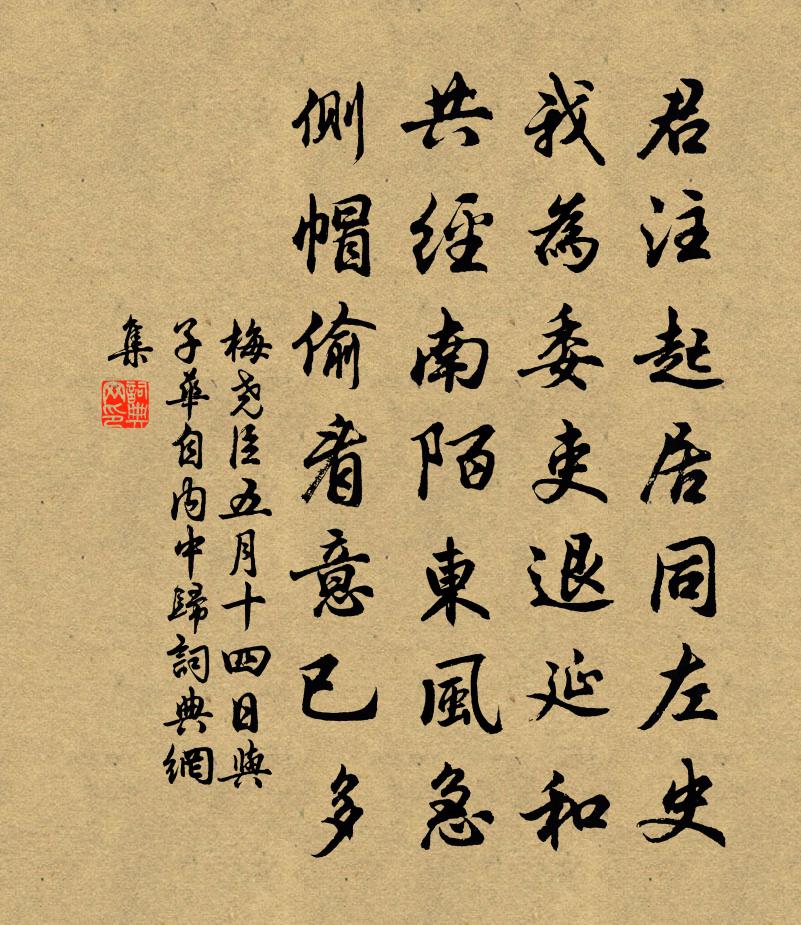 君注起居同左史
我為委吏退延和
共經南陌東風急
側帽偷看意已多
梅堯臣五月十四日與
子華自內中歸詞典網
集
詞典
网印